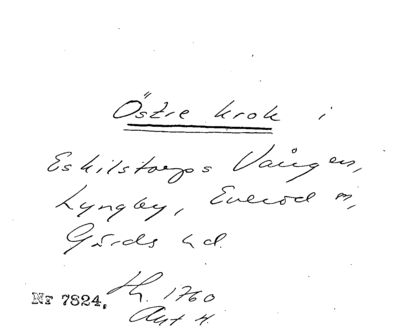 Östre krok i
Eskilstorps Vången,
Lyngby, Everöd m,
Gärds hd.
Nr 7824. Th. 1760
Aut H.